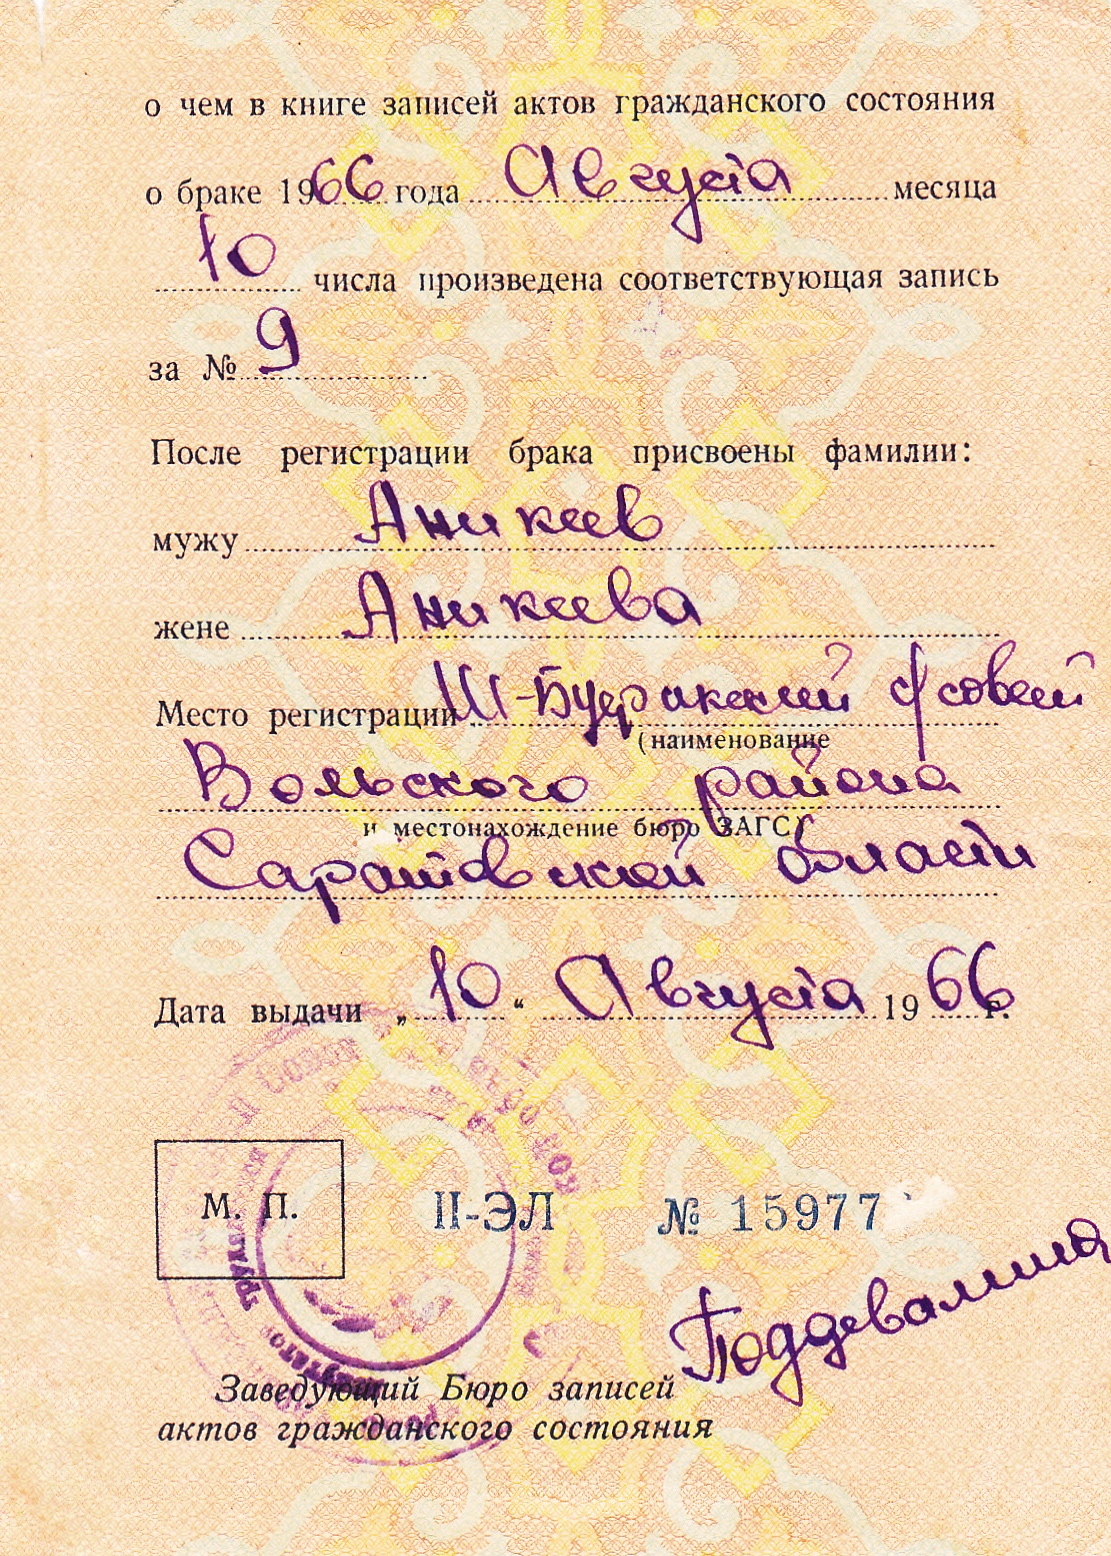 о чем в книге записей актов гражданского состояния
о браке 1966 года Августа месяца
10 числа произведена соответствующая запись
за № 9
После регистрации брака присвоены фамилии:
мужу Аникеев
жене Аникеева
Место регистрации Ш-Буеракский с/совет
(наименование
Вольского района
и местонахождение бюро ЗАГС)
Саратовской области
Дата выдачи „10“ Августа 1966 г.
М. П. II-ЭЛ № 15977
Поддевалина
Заведующий Бюро записей
актов гражданского состояния